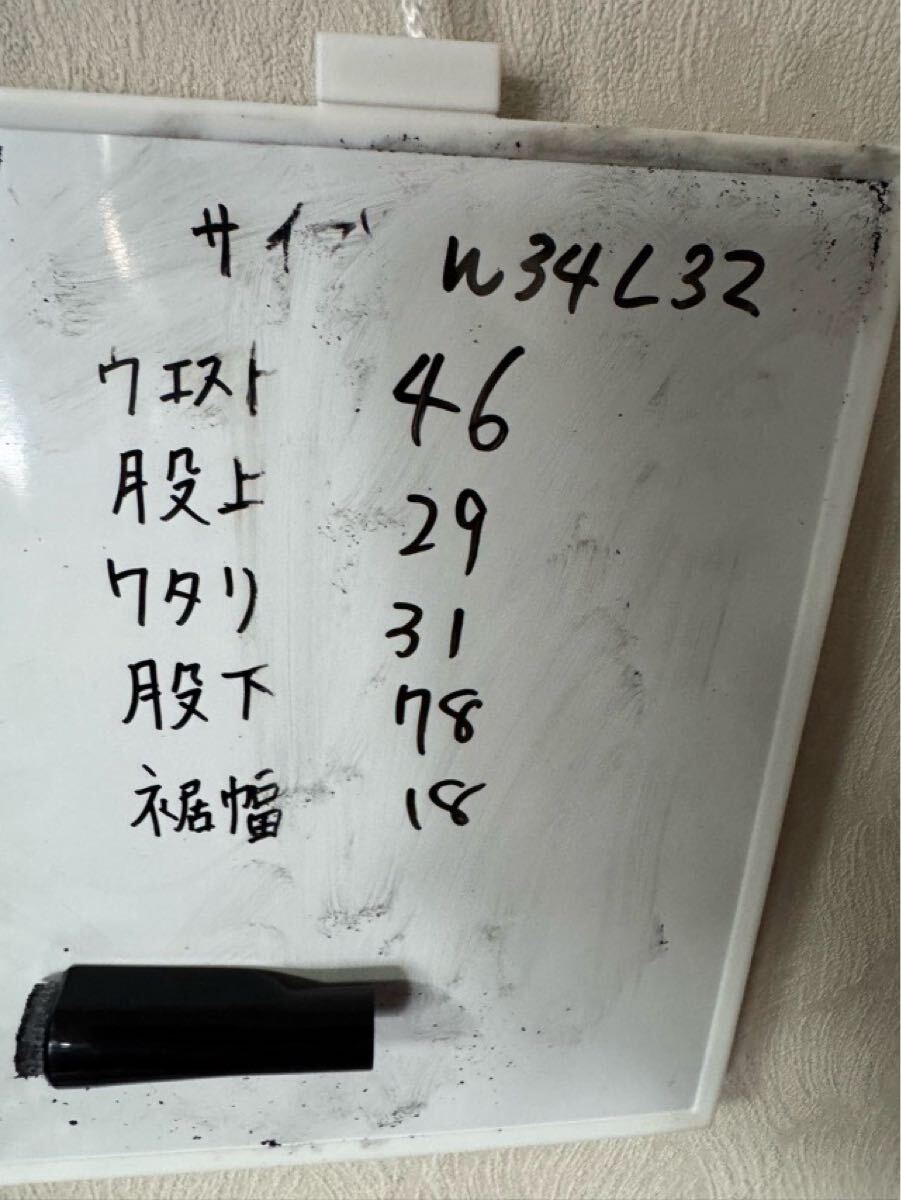 サイズ W34L32
ウエスト 46
股上 29
ワタリ 31
股下 78
裾幅 18